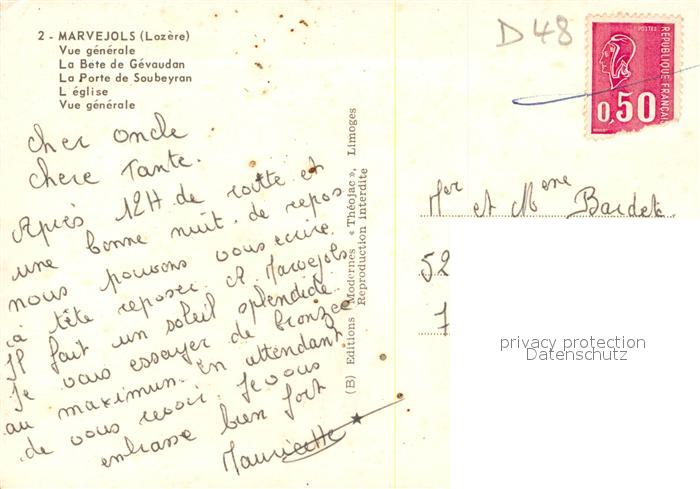 2 - MARVEJOLS (Lozère)
Vue générale
La Bete de Gévaudan
La Porte de Soubeyran
L église
Vue générale
cher oncle
chere Tante.
Après 12H de route et
une bonne nuit de repos
nous pouvons vous ecrire
à tête reposer. A Marvejols
Il fait un soleil splendide
Je vais essayer de bronzee
au maximun. en attendant
de vous revoir. Je vous
embrasse bien fort
Mauricette
(B) Editions Modernes « Théojac », Limoges
Reproduction Interdite
D 48
POSTES
REPUBLIQUE FRANÇAI
0,50
Mer et Mme Bardet
52
7
privacy protection
Datenschutz